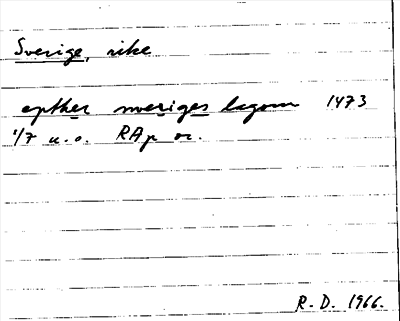 Sverige, rike
epther sweriges lagom 1473
1/7 u.o. RAp or.
R.D. 1966.